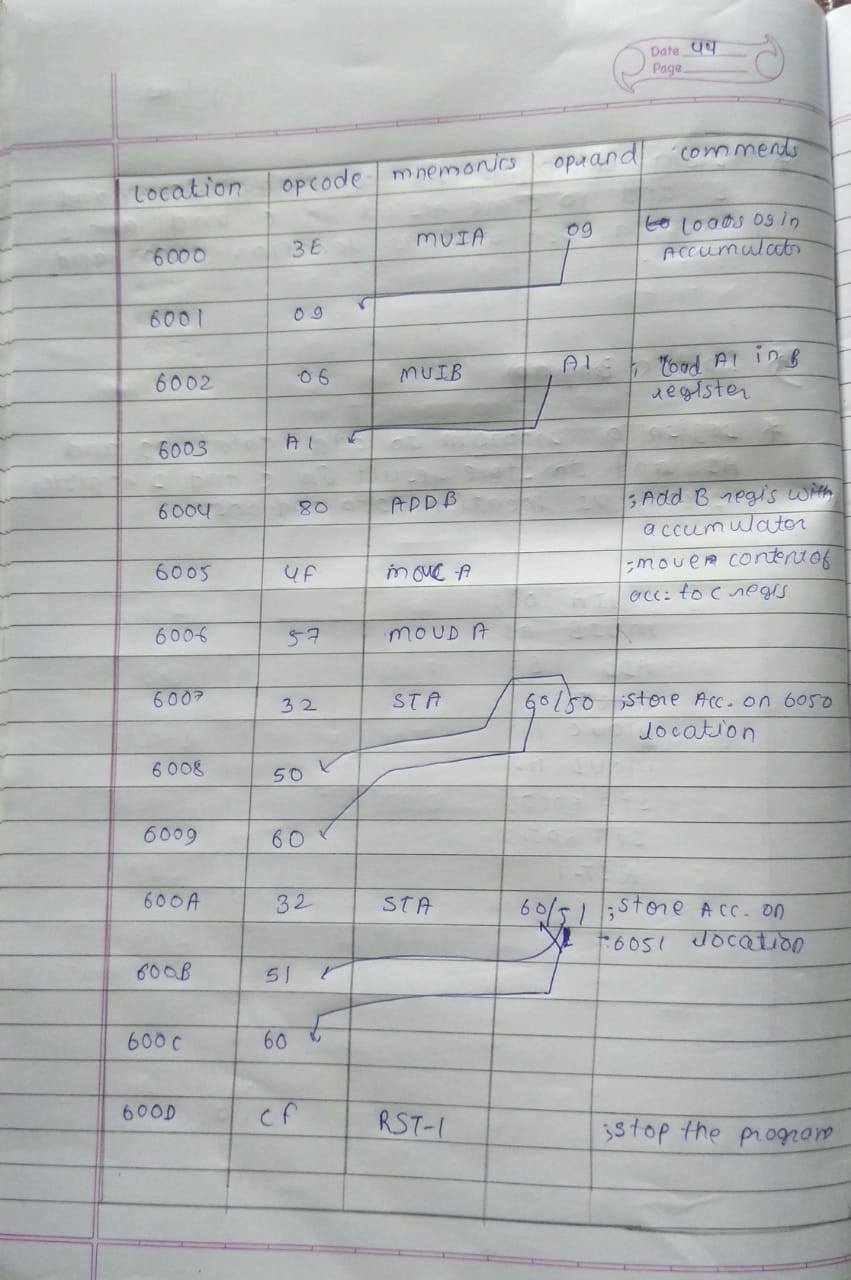 Date 44
Page
Location opcode mnemonics oprand comments
6000 3E MVIA 09 loads 09 in
Accumulator
6001 09
6002 06 MVIB A1 ; load A1 in B
register
6003 A1
6004 80 ADDB ; Add B regis with
accumulator
6005 4F MOVC A ; move content of
acc: to C regis
6006 57 MOVD A
6007 32 STA 60/50 ; store Acc. on 6050
location
6008 50
6009 60
600A 32 STA 60/51 ; store Acc. on
6051 location
600B 51
600C 60
600D CF RST-1 ; stop the program